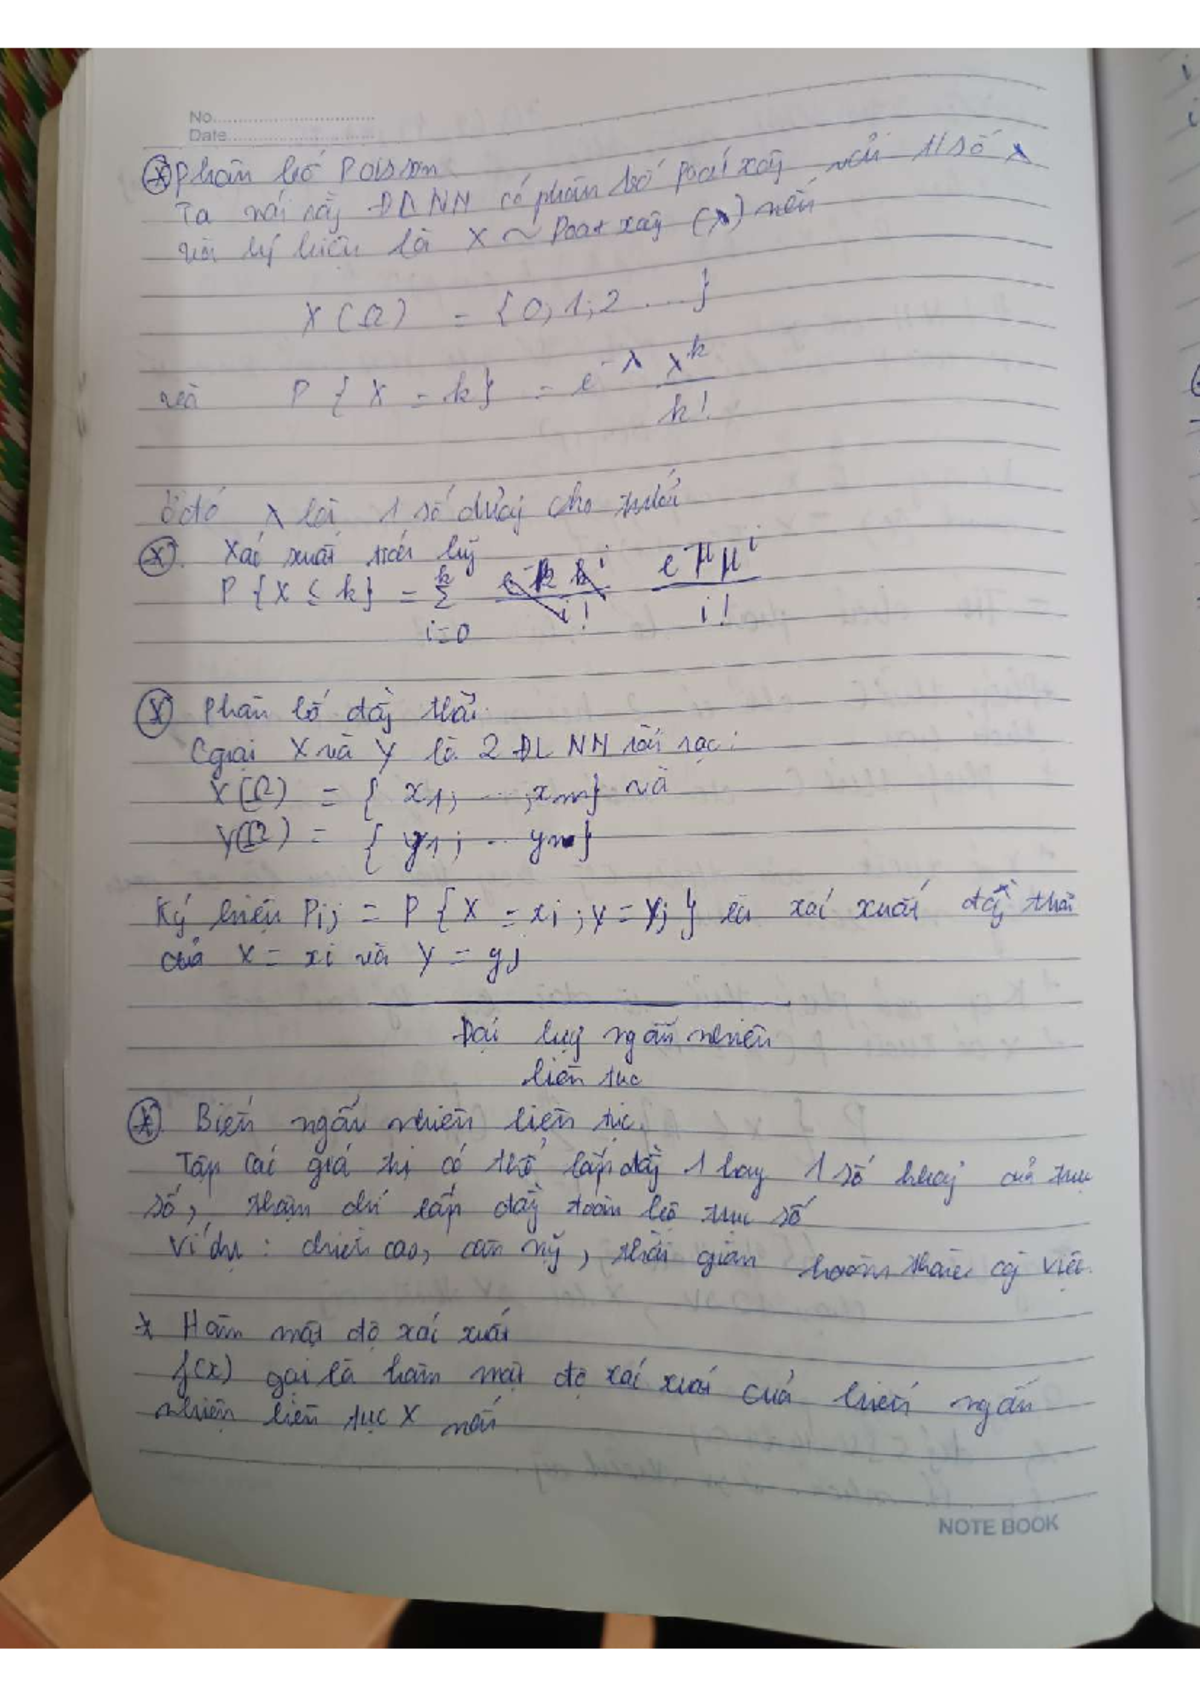 No.
Date
* Phân bố Poisson
Ta nói rằng ĐLNN có phân bố Poat xông với 1 số λ
và ký hiệu là X ~ Poat xông (λ) nếu
X(Ω) = {0, 1, 2 ...}
và P{X = k} = e^-λ λ^k / k!
Ở đó λ là 1 số dương cho trước
* Xác xuất tích luỹ
P{X ≤ k} = Σ_{i=0}^{k} e^-μ μ^i / i!
* Phân bố đồng thời
Giả X và Y là 2 ĐLNN rời rạc:
X(Ω) = {x1; ... ; xm} và
Y(Ω) = {y1; ... yn}
Ký hiệu Pij = P{X = xi; Y = Yj} là xác xuất đồng thời
của X = xi và Y = yj
Đại lượng ngẫu nhiên
liên tục
* Biến ngẫu nhiên liên tục.
Tập các giá trị có thể lấp đầy 1 hay 1 số khoảng của trục
số, thậm chí lấp đầy toàn bộ trục số
Ví dụ: chiều cao, cân nặng, thời gian hoàn thành công việc.
* Hàm mật độ xác xuất
f(x) gọi là hàm mật độ xác xuất của biến ngẫu
nhiên liên tục X nếu
NOTE BOOK